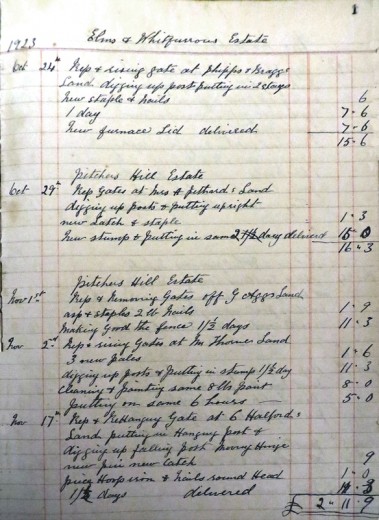 1
1923 Elms & Whitfurrows Estate
Oct 24th Rep & rising gate at Phipps & Bragge
Land digging up post putting in 2 stays
New staple & nails 6
1 day 7-6
New furnace Lid delivered 7-6
15-6
Pitchers Hill Estate
Oct 29th Rep Gates at Mrs Land
digging up posts & putting upright
new Latch & staple 1-3
New stump & putting in same 2 days delivered 15 0
16-3
Pitchers Hill Estate
Nov 1st Rep & Removing Gates off G Aggs Land
asp & staples 2 lb nails 1-9
Making Good the fence 1 1/2 days 11-3
Nov 2nd Rep & rising Gates at Land
3 new pales 1-6
digging up posts & Putting in stump 1 1/2 day 11-3
Cleaning & painting same 8 lb paint 8-0
putting on same 6 hours 5-0
Nov 17th Rep & ReHanging Gate at G Halfords
Land putting in Hanging Post &
digging up falling Post Moving Hinge
new Pin new Latch 9
piecy Hoop iron & Nails round Head 1-0
1 1/2 days delivered 11-3
£ 2-11-9